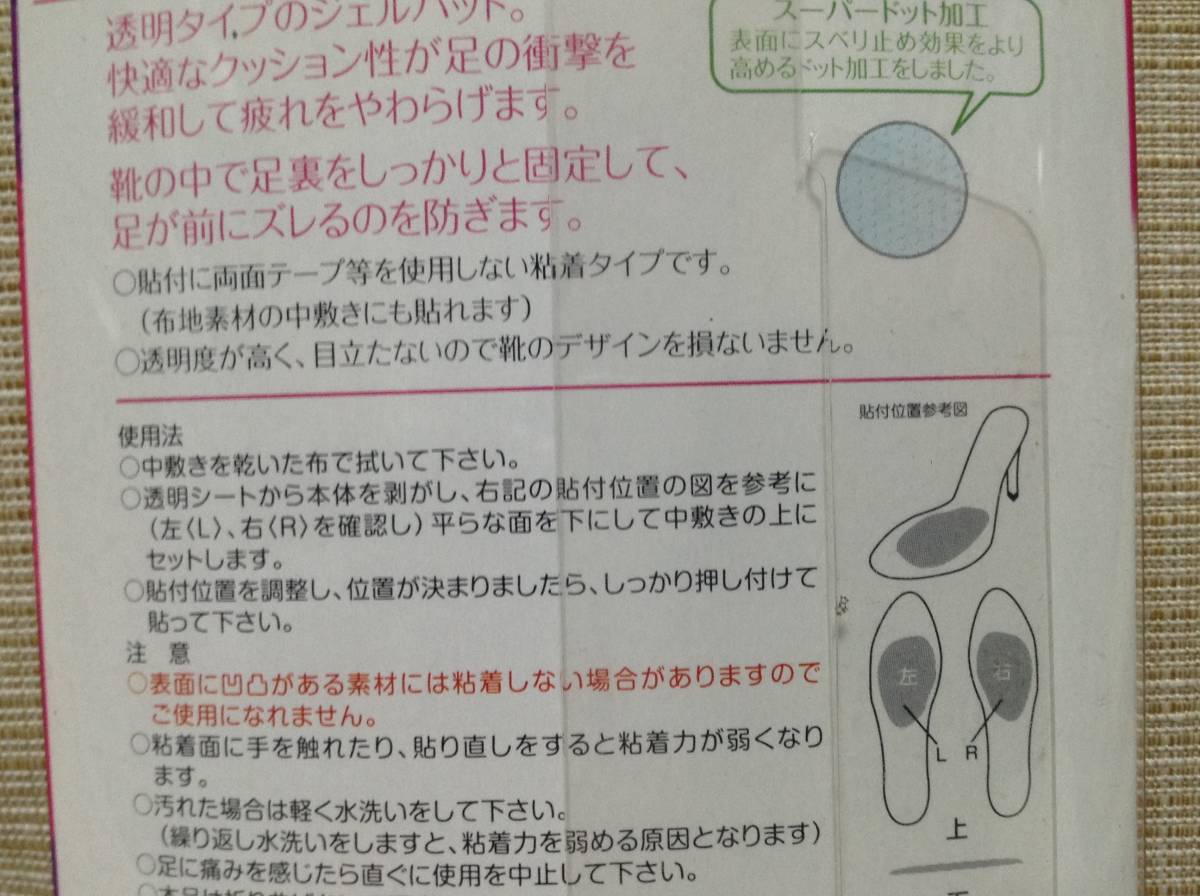 透明タイプのジェルパット。
快適なクッション性が足の衝撃を
緩和して疲れをやわらげます。
靴の中で足裏をしっかりと固定して、
足が前にズレるのを防ぎます。
○貼付に両面テープ等を使用しない粘着タイプです。
(布地素材の中敷きにも貼れます)
○透明度が高く、目立たないので靴のデザインを損ないません。
スーパードット加工
表面にスベリ止め効果をより
高めるドット加工をしました。
使用法
○中敷きを乾いた布で拭いて下さい。
○透明シートから本体を剥がし、右記の貼付位置の図を参考に
(左〈L〉、右〈R〉を確認し)平らな面を下にして中敷きの上に
セットします。
○貼付位置を調整し、位置が決まりましたら、しっかり押し付けて
貼って下さい。
注 意
○表面に凹凸がある素材には粘着しない場合がありますので
ご使用になれません。
○粘着面に手を触れたり、貼り直しをすると粘着力が弱くなり
ます。
○汚れた場合は軽く水洗いをして下さい。
(繰り返し水洗いをしますと、粘着力を弱める原因となります)
○足に痛みを感じたら直ぐに使用を中止して下さい。
貼付位置参考図
左 右
L R
上